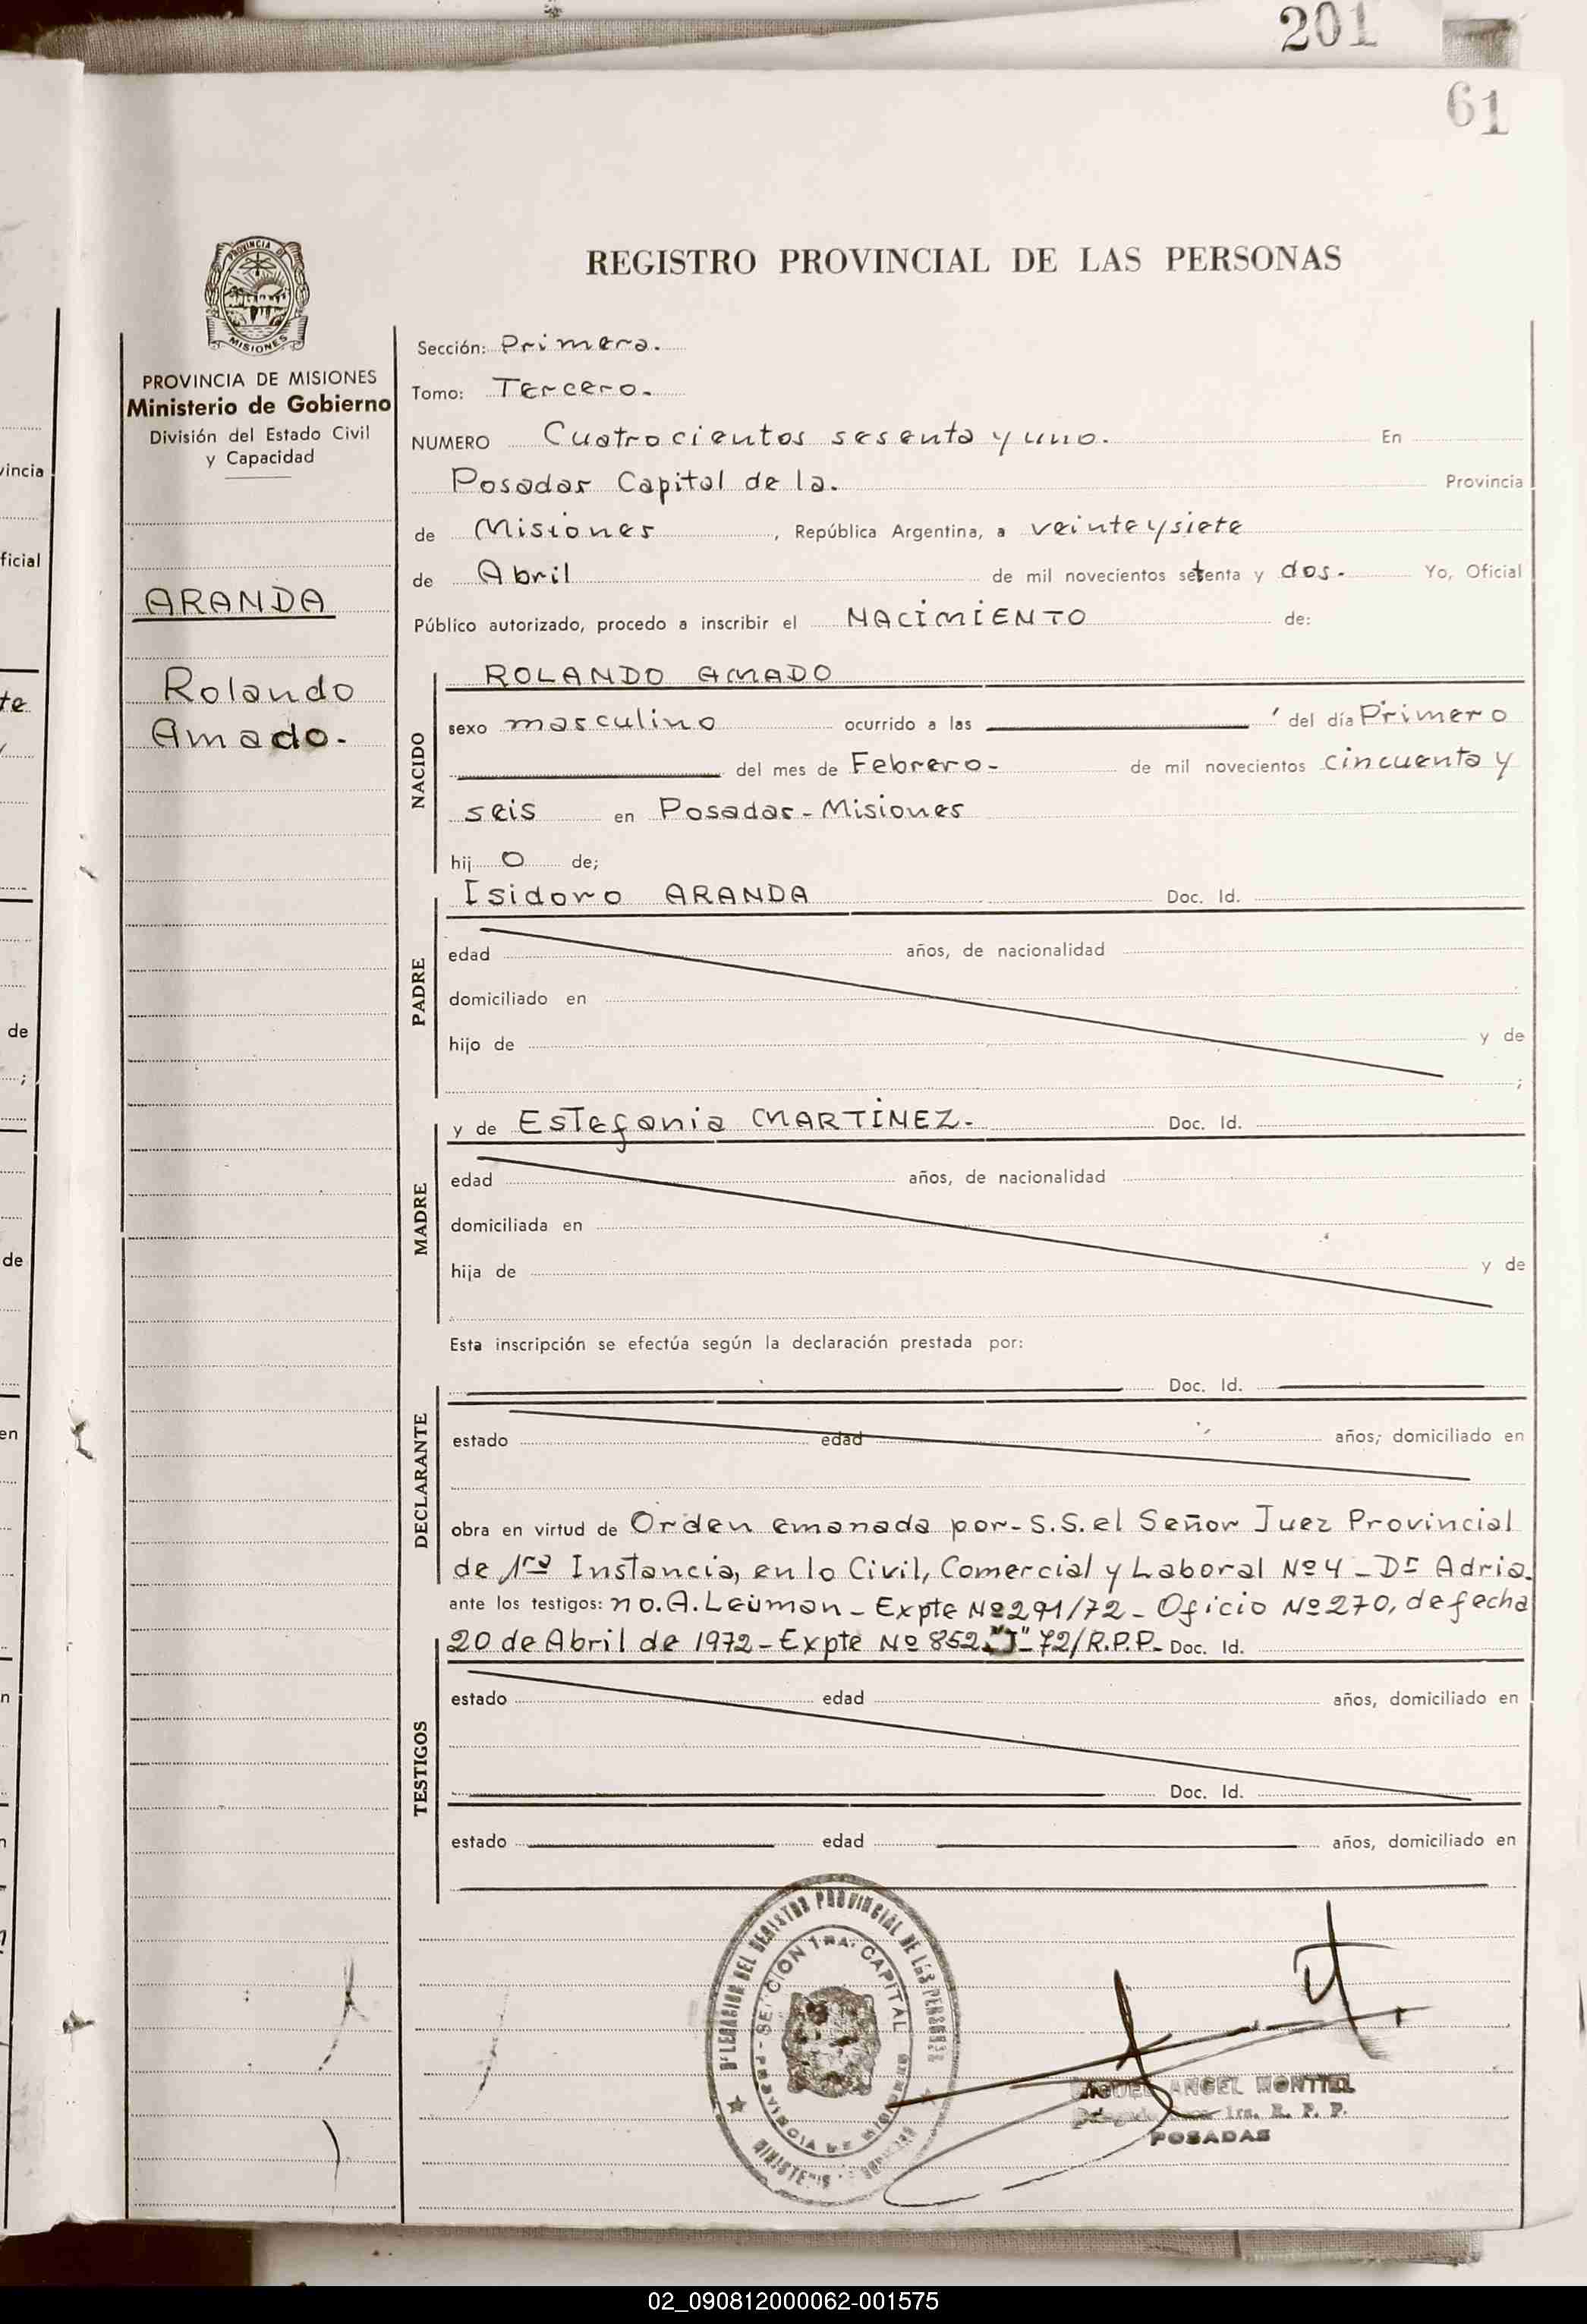 201
61
PROVINCIA DE
MISIONES
REGISTRO PROVINCIAL DE LAS PERSONAS
PROVINCIA DE MISIONES
Ministerio de Gobierno
División del Estado Civil
y Capacidad
ARANDA
Rolando
Amado.-
Sección: Primera.
Tomo: Tercero.-
NUMERO Cuatrocientos sesenta y uno. En
Posadas Capital de la. Provincia
de Misiones, República Argentina, a veinteysiete
de Abril de mil novecientos setenta y dos.- Yo, Oficial
Público autorizado, procedo a inscribir el NACIMIENTO de:
NACIDO
ROLANDO AMADO
sexo masculino ocurrido a las del día Primero
del mes de Febrero- de mil novecientos cincuenta y
seis en Posadas-Misiones
hij o de;
PADRE
Isidoro ARANDA Doc. Id.
edad años, de nacionalidad
domiciliado en
hijo de y de
;
MADRE
y de Estefania MARTINEZ.- Doc. Id.
edad años, de nacionalidad
domiciliada en
hija de y de
Esta inscripción se efectúa según la declaración prestada por:
DECLARANTE
Doc. Id.
estado edad años; domiciliado en
obra en virtud de Orden emanada por-S.S. el Señor Juez Provincial
de 1ra Instancia, en lo Civil, Comercial y Laboral Nº4-Dr Adria-
ante los testigos: no.A.Leiman-Expte Nº291/72-Oficio Nº270, de fecha
20 de Abril de 1972-Expte Nº852"J"-72/R.P.P- Doc. Id.
TESTIGOS
estado edad años, domiciliado en
Doc. Id.
estado edad años, domiciliado en
DELEGACION DEL REGISTRO PROVINCIAL DE LAS PERSONAS
SECCION 1RA. CAPITAL
PROVINCIA DE MISIONES
MIGUEL ANGEL MONTIEL
1ra. R. P. P.
POSADAS
02_090812000062-001575